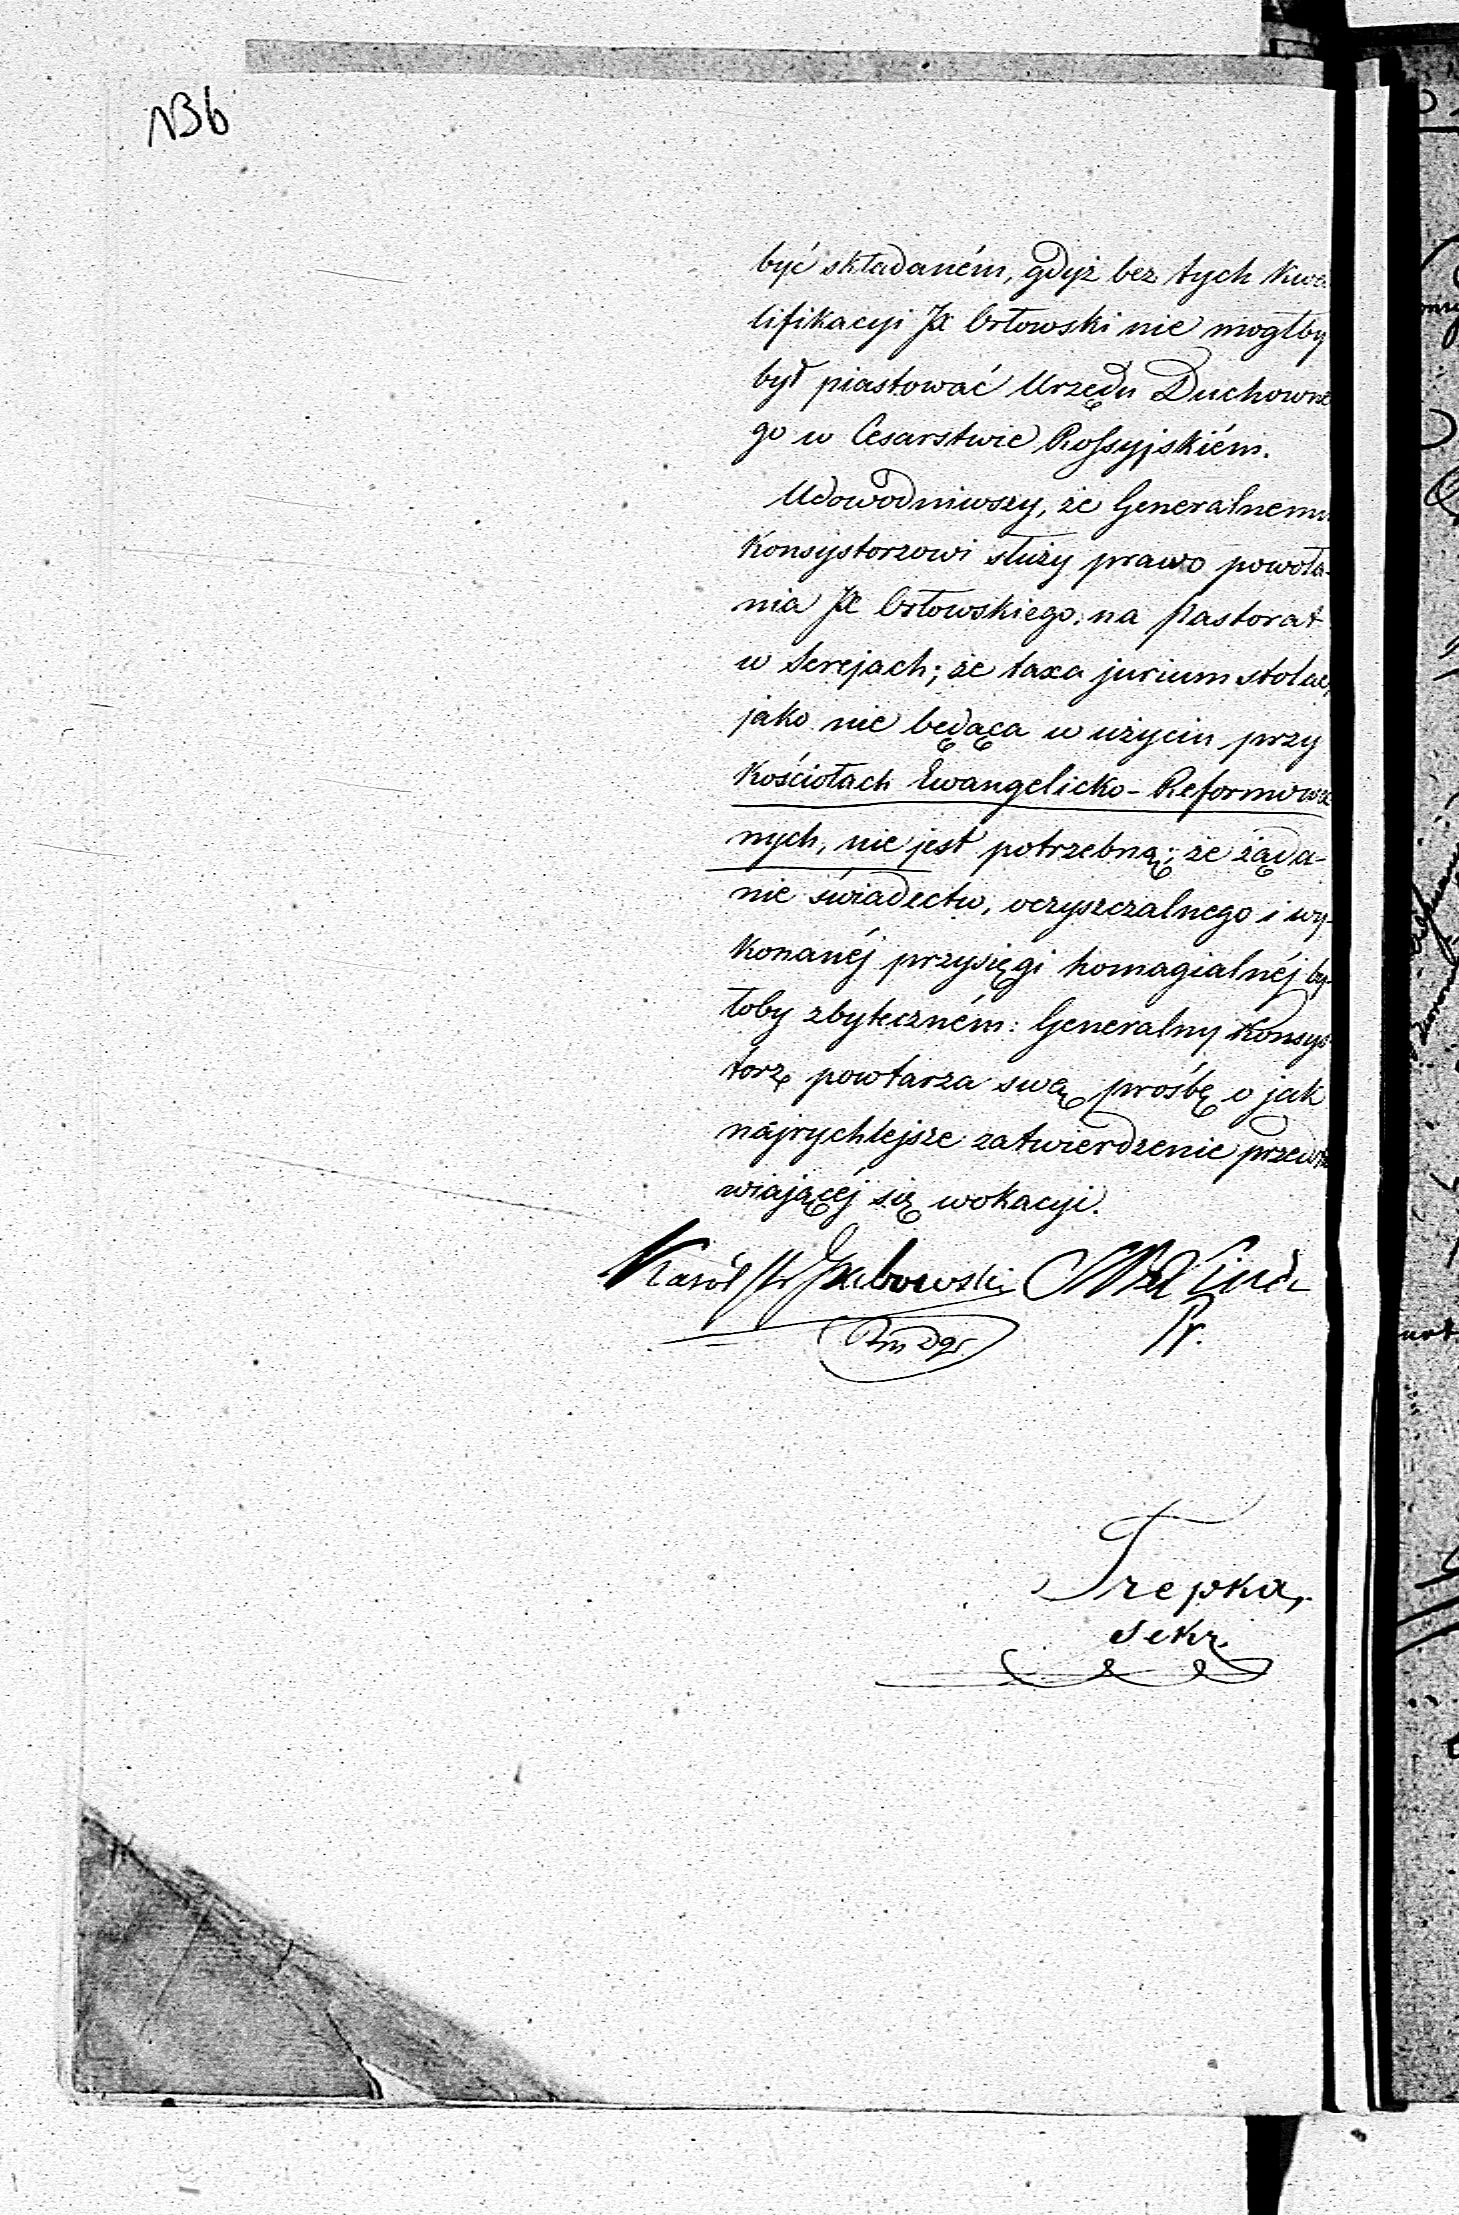 136
być składaném, gdyż bez tych Kwa
lifikacyi JX Orłowski nie mogłby
był piastować Urzędu Duchowne
go w Cesarstwie Rossyjskiém.
Udowodniwszy, że Generalnemu
Konsystorzowi służy prawo powoła-
nia JX Orłowskiego na Pastorat
w Serejach; że taxa jurium stolae,
jako nie będąca w użyciu przy
Kościołach Ewangelicko-Reformowa
nych, nie jest potrzebną; że żąda-
nie świadectw, oczyszczalnego i wy-
konanéj przysięgi homagialnéj by-
łoby zbyteczném: Generalny Konsys
torz powtarza swą prośbę o jak
nájrychlejsze zatwierdzenie
wiającéj się wokacyi.
Karól
Pr.
Trepka,
Sekr.